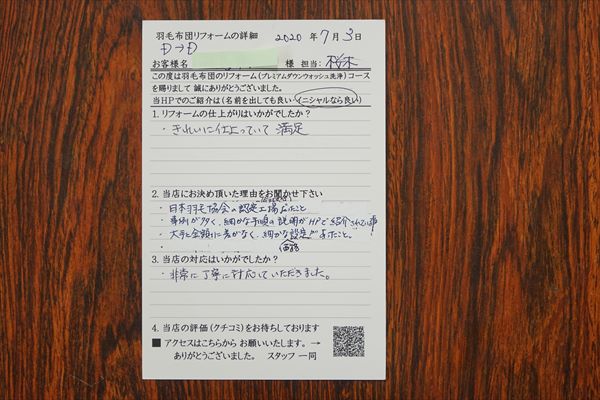 羽毛布団リフォームの詳細 2020 年 7月 3日
D→D
お客様名 様 担当:
この度は羽毛布団のリフォーム(プレミアムダウンウォッシュ洗浄)コース
を賜りまして 誠にありがとうございました。
当HPでのご紹介は(名前を出しても良い・イニシャルなら良い)
1. リフォームの仕上がりはいかがでしたか?
・きれいに仕上っていて 満足
2. 当店にお決め頂いた理由をお聞かせ下さい
・日本羽毛協会の認定工場だったこと
事例が多く、細かな手順の説明がHPで紹介されている事
・大手と金額に差がなく、細かな設定があったこと。
・
価格
3. 当店の対応はいかがでしたか?
・非常に丁寧に対応していただきました。
4. 当店の評価(クチコミ)をお待ちしております
■ アクセスはこちらから お願いいたします。→
ありがとうございました。 スタッフ 一同